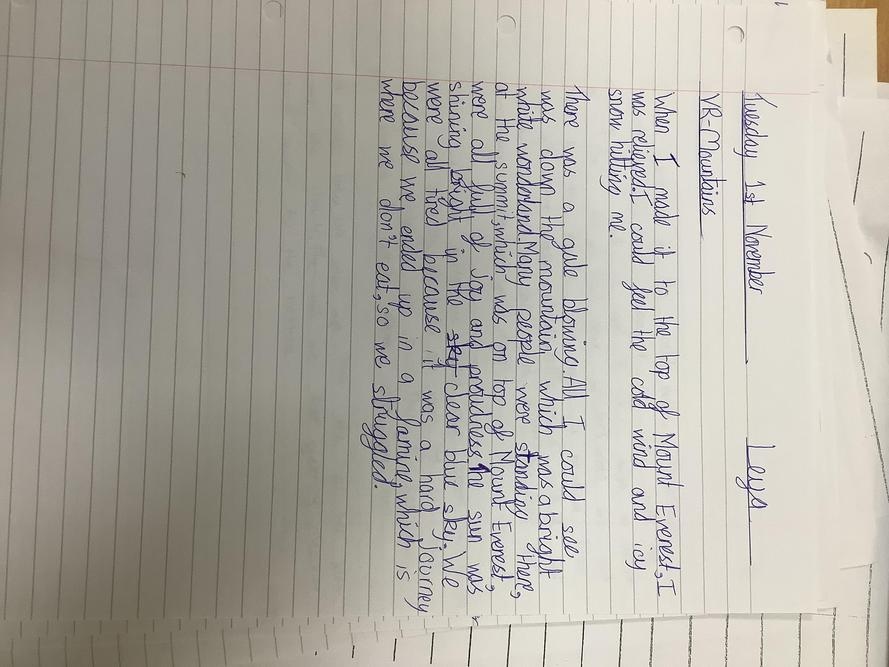 Tuesday 1st November Leya
VR-Mountains
When I made it to the top of Mount Everest, I
was relieved. I could feel the cold wind and icy
snow hitting me.
There was a gale blowing. All I could see
was down the mountain which was a bright
white wonderland. Many people were standing there,
at the summit, which was on top of Mount Everest,
were all full of joy and proudness. The sun was
shining bright in the sky clear blue sky. We
were all tired because it was a hard journey
because we ended up in a famine, which is
where we don't eat, so we struggled.